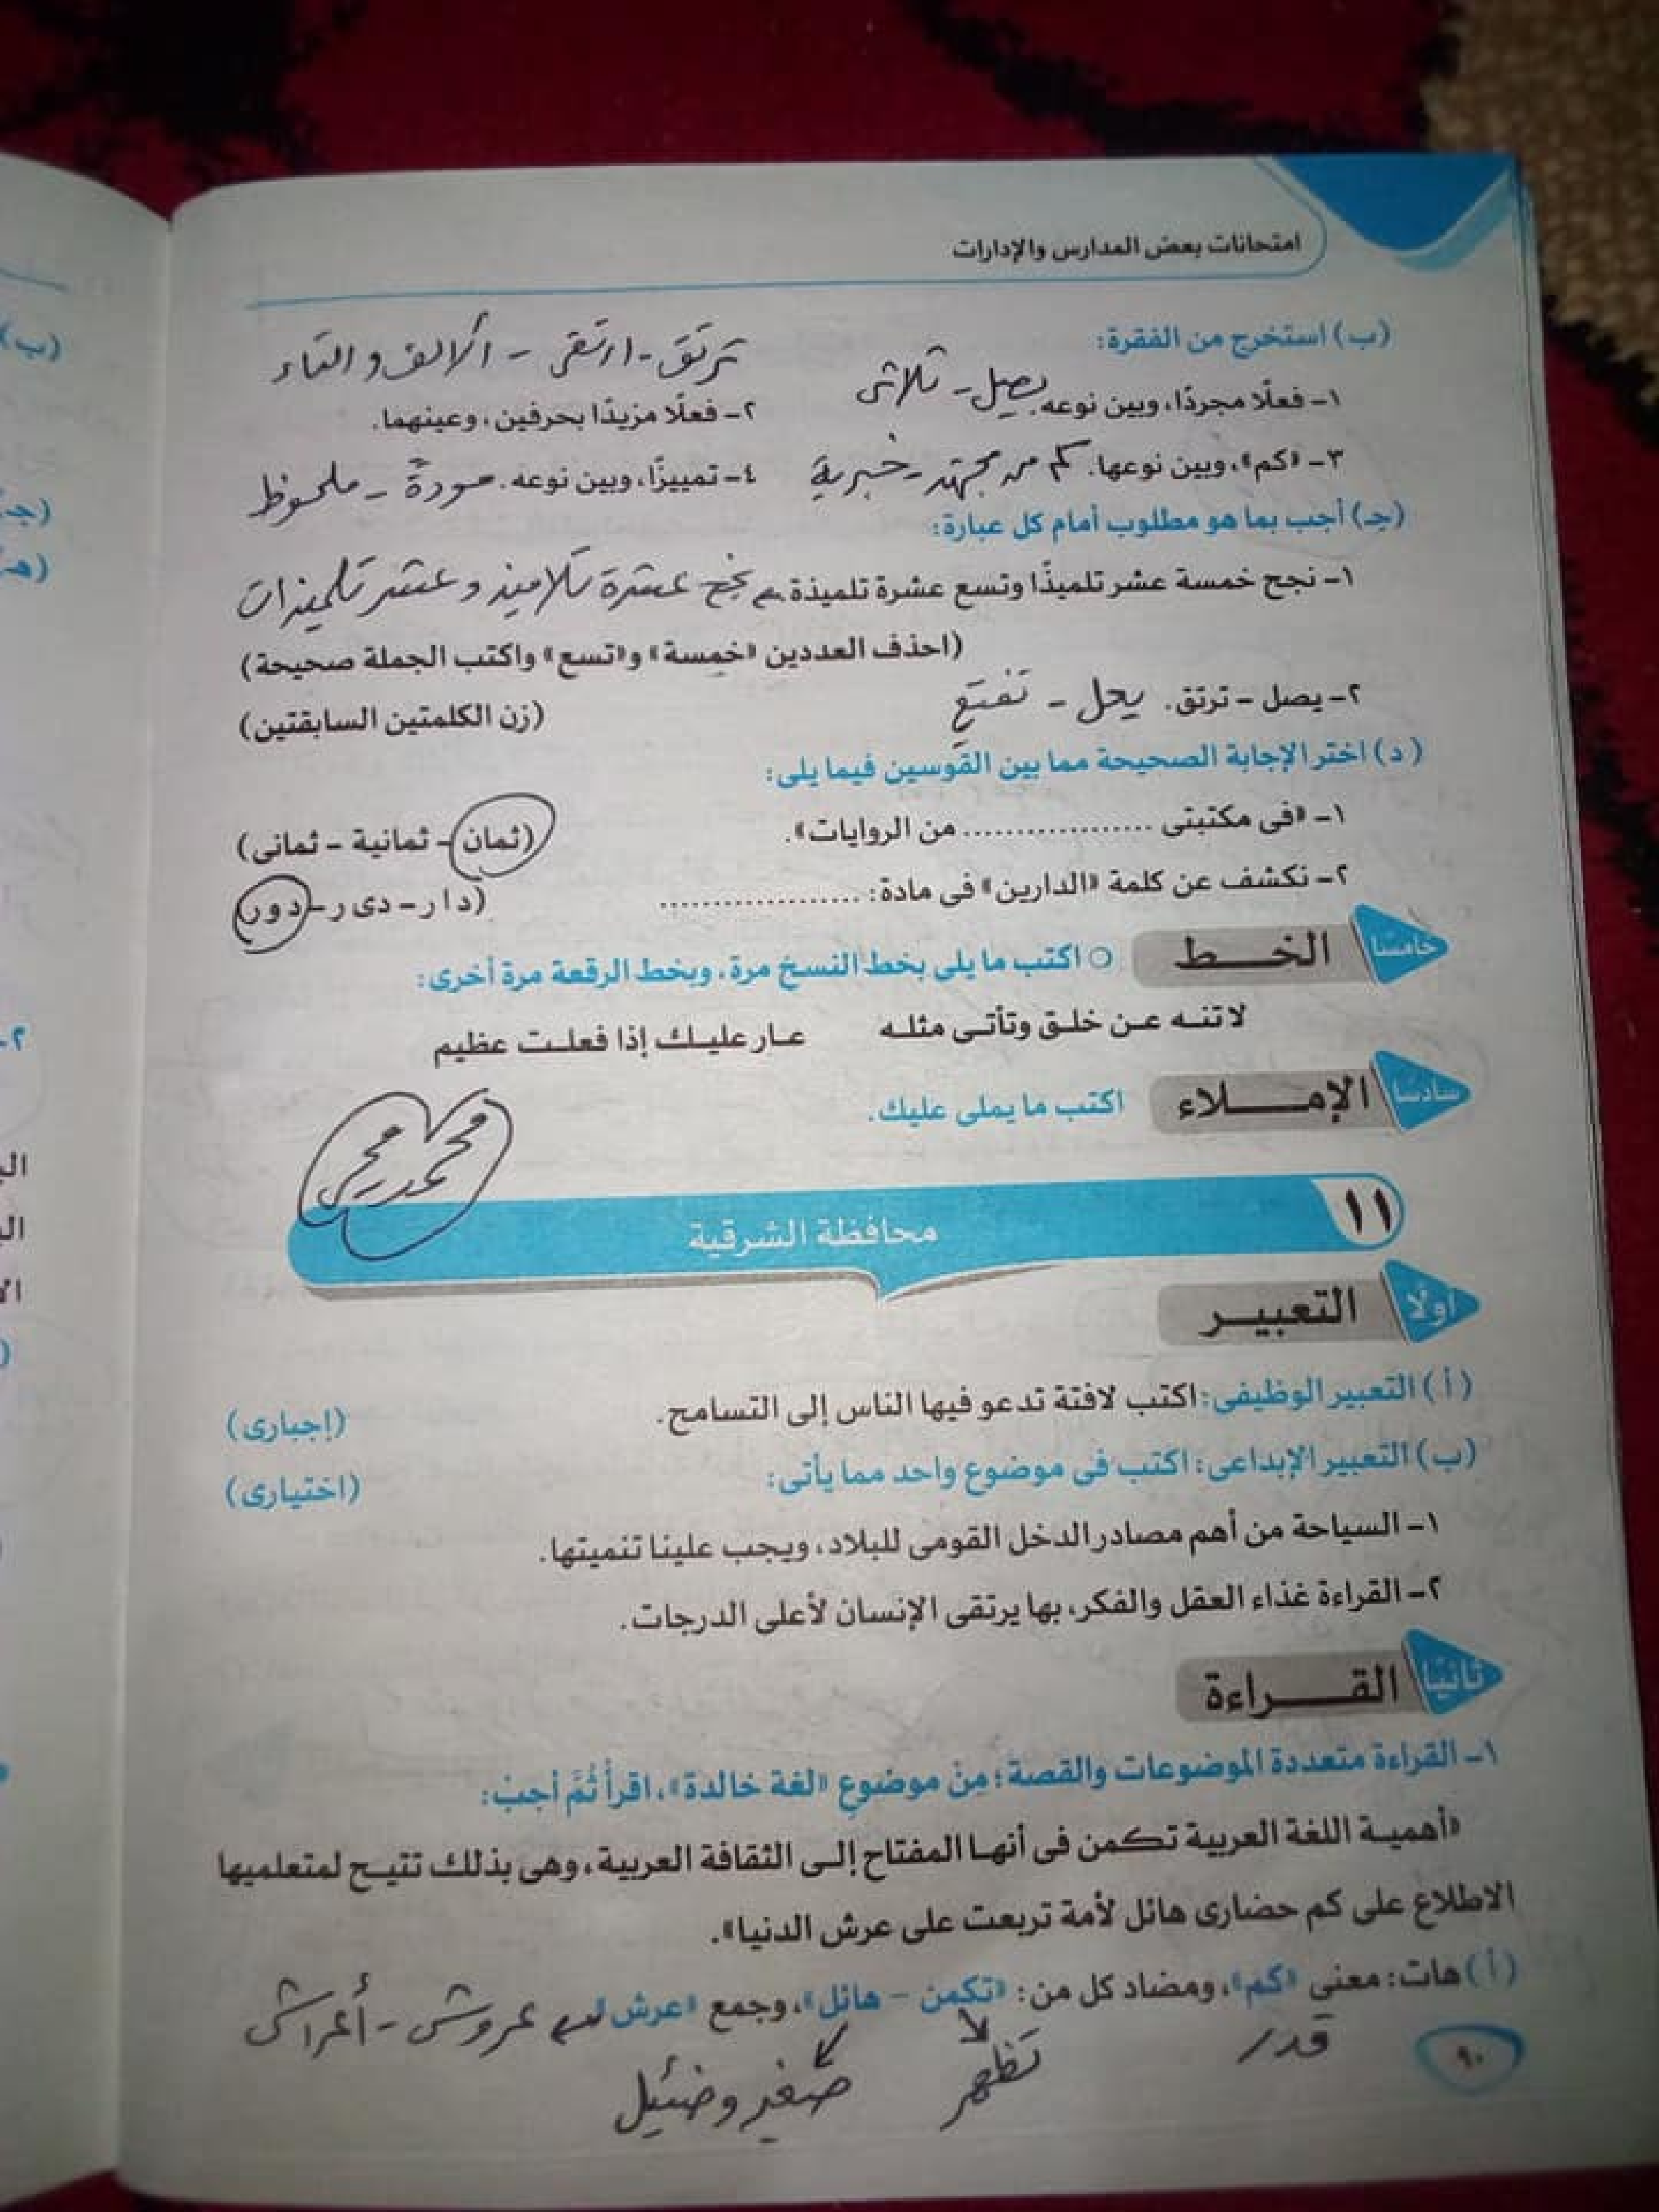 امتحانات بعض المدارس والإدارات
(ب) استخرج من الفقرة:
ترتق - ارتقى - الألف والتاء
١- فعلًا مجردًا، وبين نوعه. يصل - ثلاثى
٢- فعلًا مزيدًا بحرفين، وعينهما.
٣- «كم»، وبين نوعها. كم من مجتهد - خبرية
٤- تمييزًا، وبين نوعه. مودة - ملحوظ
(جـ) أجب بما هو مطلوب أمام كل عبارة:
١- نجح خمسة عشر تلميذًا وتسع عشرة تلميذة. نجح عشرة تلاميذ وعشر تلميذات
(احذف العددين «خمسة» و«تسع» واكتب الجملة صحيحة)
٢- يصل - ترتق. يعل - تفتع
(زن الكلمتين السابقتين)
(د) اختر الإجابة الصحيحة مما بين القوسين فيما يلى:
١- «فى مكتبتى .................. من الروايات».
(ثمان - ثمانية - ثمانى)
٢- نكشف عن كلمة «الدارين» فى مادة: ..................
(د ا ر - دى ر - د و ر)
خامسًا الخـــط
اكتب ما يلى بخط النسخ مرة، وبخط الرقعة مرة أخرى:
لا تنـه عـن خلـق وتأتـى مثلـه عـار عليـك إذا فعلـت عظيم
سادسًا الإمـــلاء اكتب ما يملى عليك.
١١ محافظة الشرقية
أولًا التعبيـر
(أ) التعبير الوظيفى: اكتب لافتة تدعو فيها الناس إلى التسامح.
(إجبارى)
(ب) التعبير الإبداعى: اكتب فى موضوع واحد مما يأتى:
(اختيارى)
١- السياحة من أهم مصادر الدخل القومى للبلاد، ويجب علينا تنميتها.
٢- القراءة غذاء العقل والفكر، بها يرتقى الإنسان لأعلى الدرجات.
ثانيًا القـــراءة
١- القراءة متعددة الموضوعات والقصة؛ مِنْ موضوع «لغة خالدة»، اقرأْ ثُمَّ أجبْ:
«أهميـة اللغة العربية تكمن فى أنهـا المفتاح إلـى الثقافة العربية، وهى بذلك تتيـح لمتعلميها
الاطلاع على كم حضارى هائل لأمة تربعت على عرش الدنيا».
(أ) هات: معنى «كم»، ومضاد كل من: «تكمن - هائل»، وجمع «عرش» عروش - أعراش
قدر تظهر صغير وضئيل
٩٠